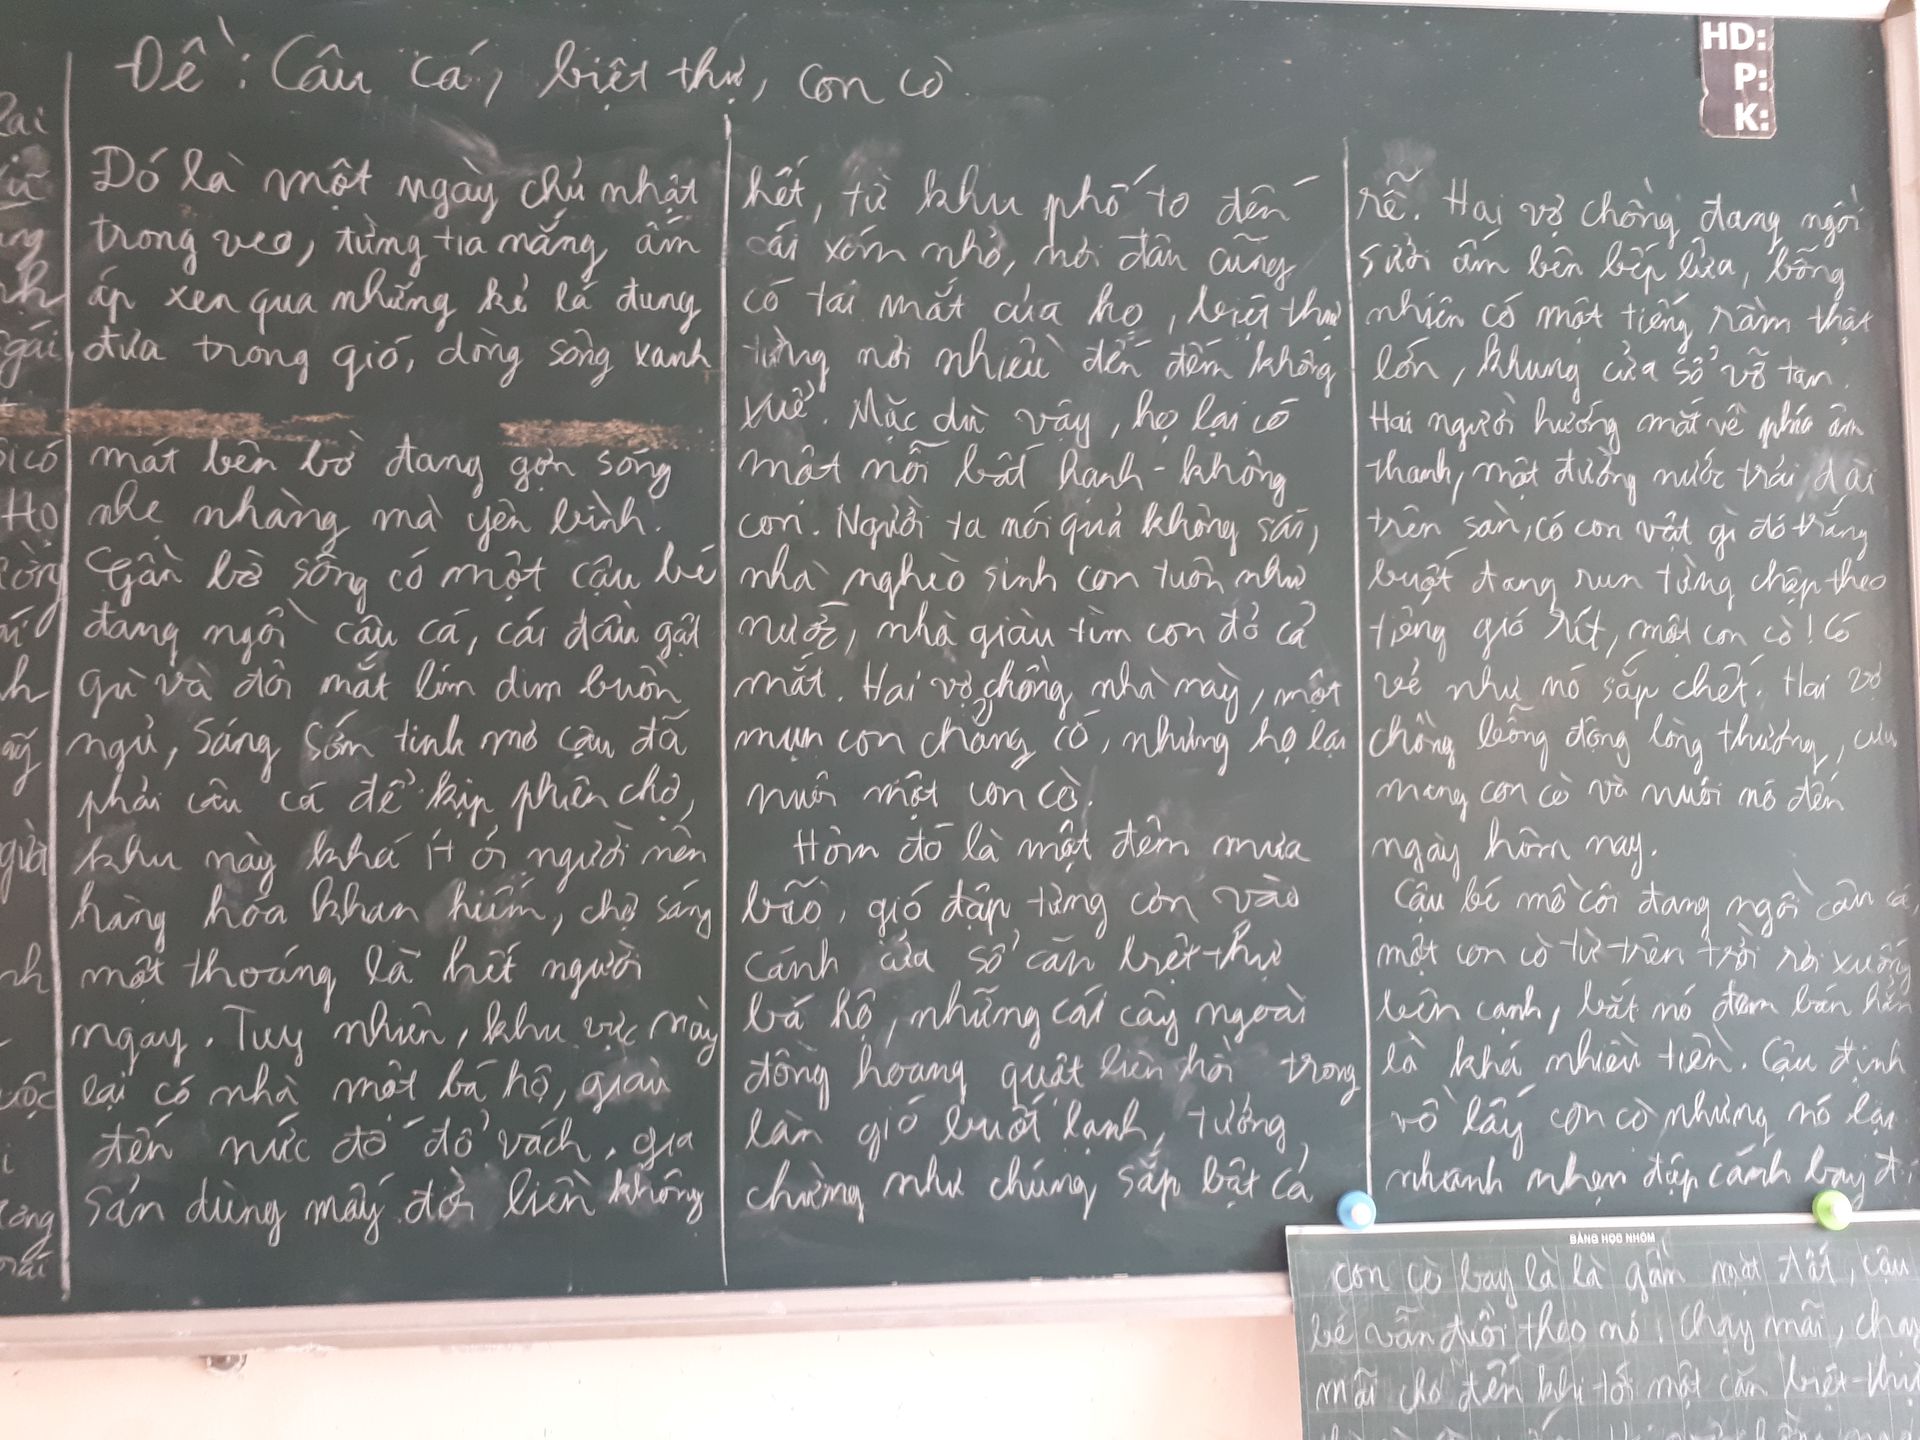 Đề: Câu cá, biệt thự, con cò
HD:
P:
K:
Đó là một ngày chủ nhật
trong veo, từng tia nắng ấm
áp xen qua những kẻ lá đung
đưa trong gió, dòng sông xanh
mát bên bờ đang gợn sóng
nhẹ nhàng mà yên bình.
Gần bờ sông có một cậu bé
đang ngồi câu cá, cái đầu gật
gù và đôi mắt lim dim buồn
ngủ, sáng sớm tinh mơ cậu đã
phải câu cá để kịp phiên chợ,
khu này khá ít ỏi người nên
hàng hóa khan hiếm, chợ sáng
một thoáng là hết người
ngay. Tuy nhiên, khu vực này
lại có nhà một bá hộ, giàu
đến mức đổ đố vách, gia
sản dùng mấy đời liền không
hết, từ khu phố to đến
cái xóm nhỏ, nơi đâu cũng
có tai mắt của họ, biệt thự
từng nơi nhiều đến đếm không
xuể. Mặc dù vậy, họ lại có
một nỗi bất hạnh - không
con. Người ta nói quả không sai,
nhà nghèo sinh con tuôn như
nước, nhà giàu tìm con đỏ cả
mắt. Hai vợ chồng nhà này, một
mụn con chẳng có, nhưng họ lại
nuôi một con cò.
Hôm đó là một đêm mưa
bão, gió đập từng cơn vào
cánh cửa sổ căn biệt thự
bá hộ, những cái cây ngoài
đồng hoang quật liên hồi trong
làn gió buốt lạnh, tưởng
chừng như chúng sắp bật cả
rễ. Hai vợ chồng đang ngồi
sưởi ấm bên bếp lửa, bỗng
nhiên có một tiếng rầm thật
lớn, khung cửa sổ vỡ tan.
Hai người hướng mắt về phía âm
thanh, một đường nước trải dài
trên sàn, có con vật gì đó trắng
buốt đang run từng chập theo
tiếng gió rít, một con cò! Có
vẻ như nó sắp chết. Hai vợ
chồng bỗng động lòng thương, cưu
mang con cò và nuôi nó đến
ngày hôm nay.
Cậu bé mồ côi đang ngồi câu cá,
một con cò từ trên trời rơi xuống
bên cạnh, bắt nó đem bán hẳn
là khá nhiều tiền. Cậu định
vồ lấy con cò nhưng nó lại
nhanh nhẹn đập cánh bay đi
BẢNG HỌC NHÓM
con cò bay là là gần mặt đất, cậu
bé vẫn đuổi theo nó, chạy mãi, chạy
mãi cho đến khi tới một căn biệt thự